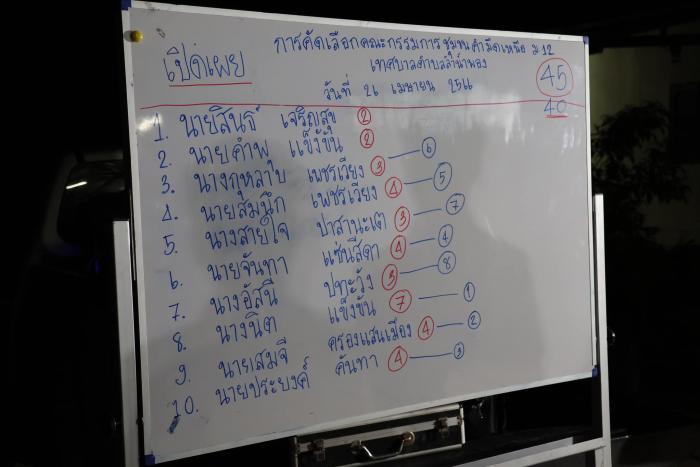 การคัดเลือกคณะกรรมการชุมชนคำมืดเหนือ ม.12
เปิดเผย
เทศบาลตำบลลำน้ำพอง
45
วันที่ 26 เมษายน 2566
40
1. นายสินธ์ เจริญสุข 2
2. นายคำพ แข็งขัน 2
3. นางกุหลาบ เพชรเวียง 3 6
4. นายสมนึก เพชรเวียง 4 5
5. นางสายใจ ปาสานะเต 3 7
6. นายจันทา แซ่นสีดา 4 4
7. นางอัสนี ปทะวัง 3 8
8. นางนิต แข็งขัน 7 1
9. นายสมจี ครองแสนเมือง 4 2
10. นายประยงค์ ค้นทา 4 3